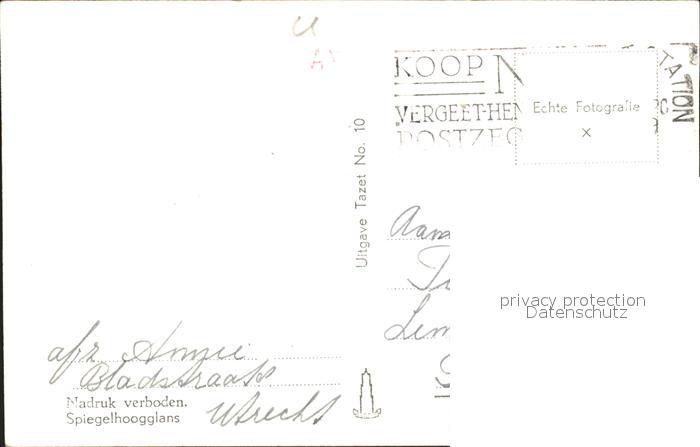 KOOP
VERGEET-HEN
POSTZEG
TATION
Echte Fotografie
x
Uitgave Tazet No. 10
Aan
privacy protection
Datenschutz
afz Annie
Bladstraat
Nadruk verboden.
Spiegelhoogglans
Utrecht